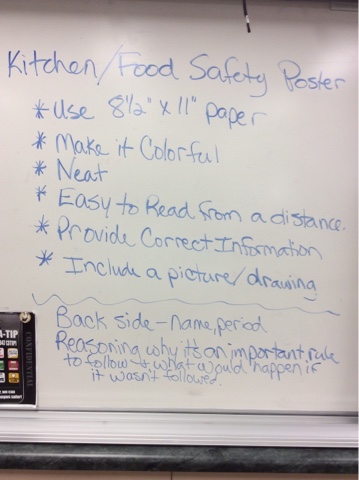 Kitchen/Food Safety Poster
* Use 8½" x 11" paper
* Make it Colorful
* Neat
* Easy to Read from a distance.
* Provide Correct Information
* Include a picture/drawing
Back side - name, period
Reasoning why it's an important rule
to follow & what would happen if
it wasn't followed.
A-TIP